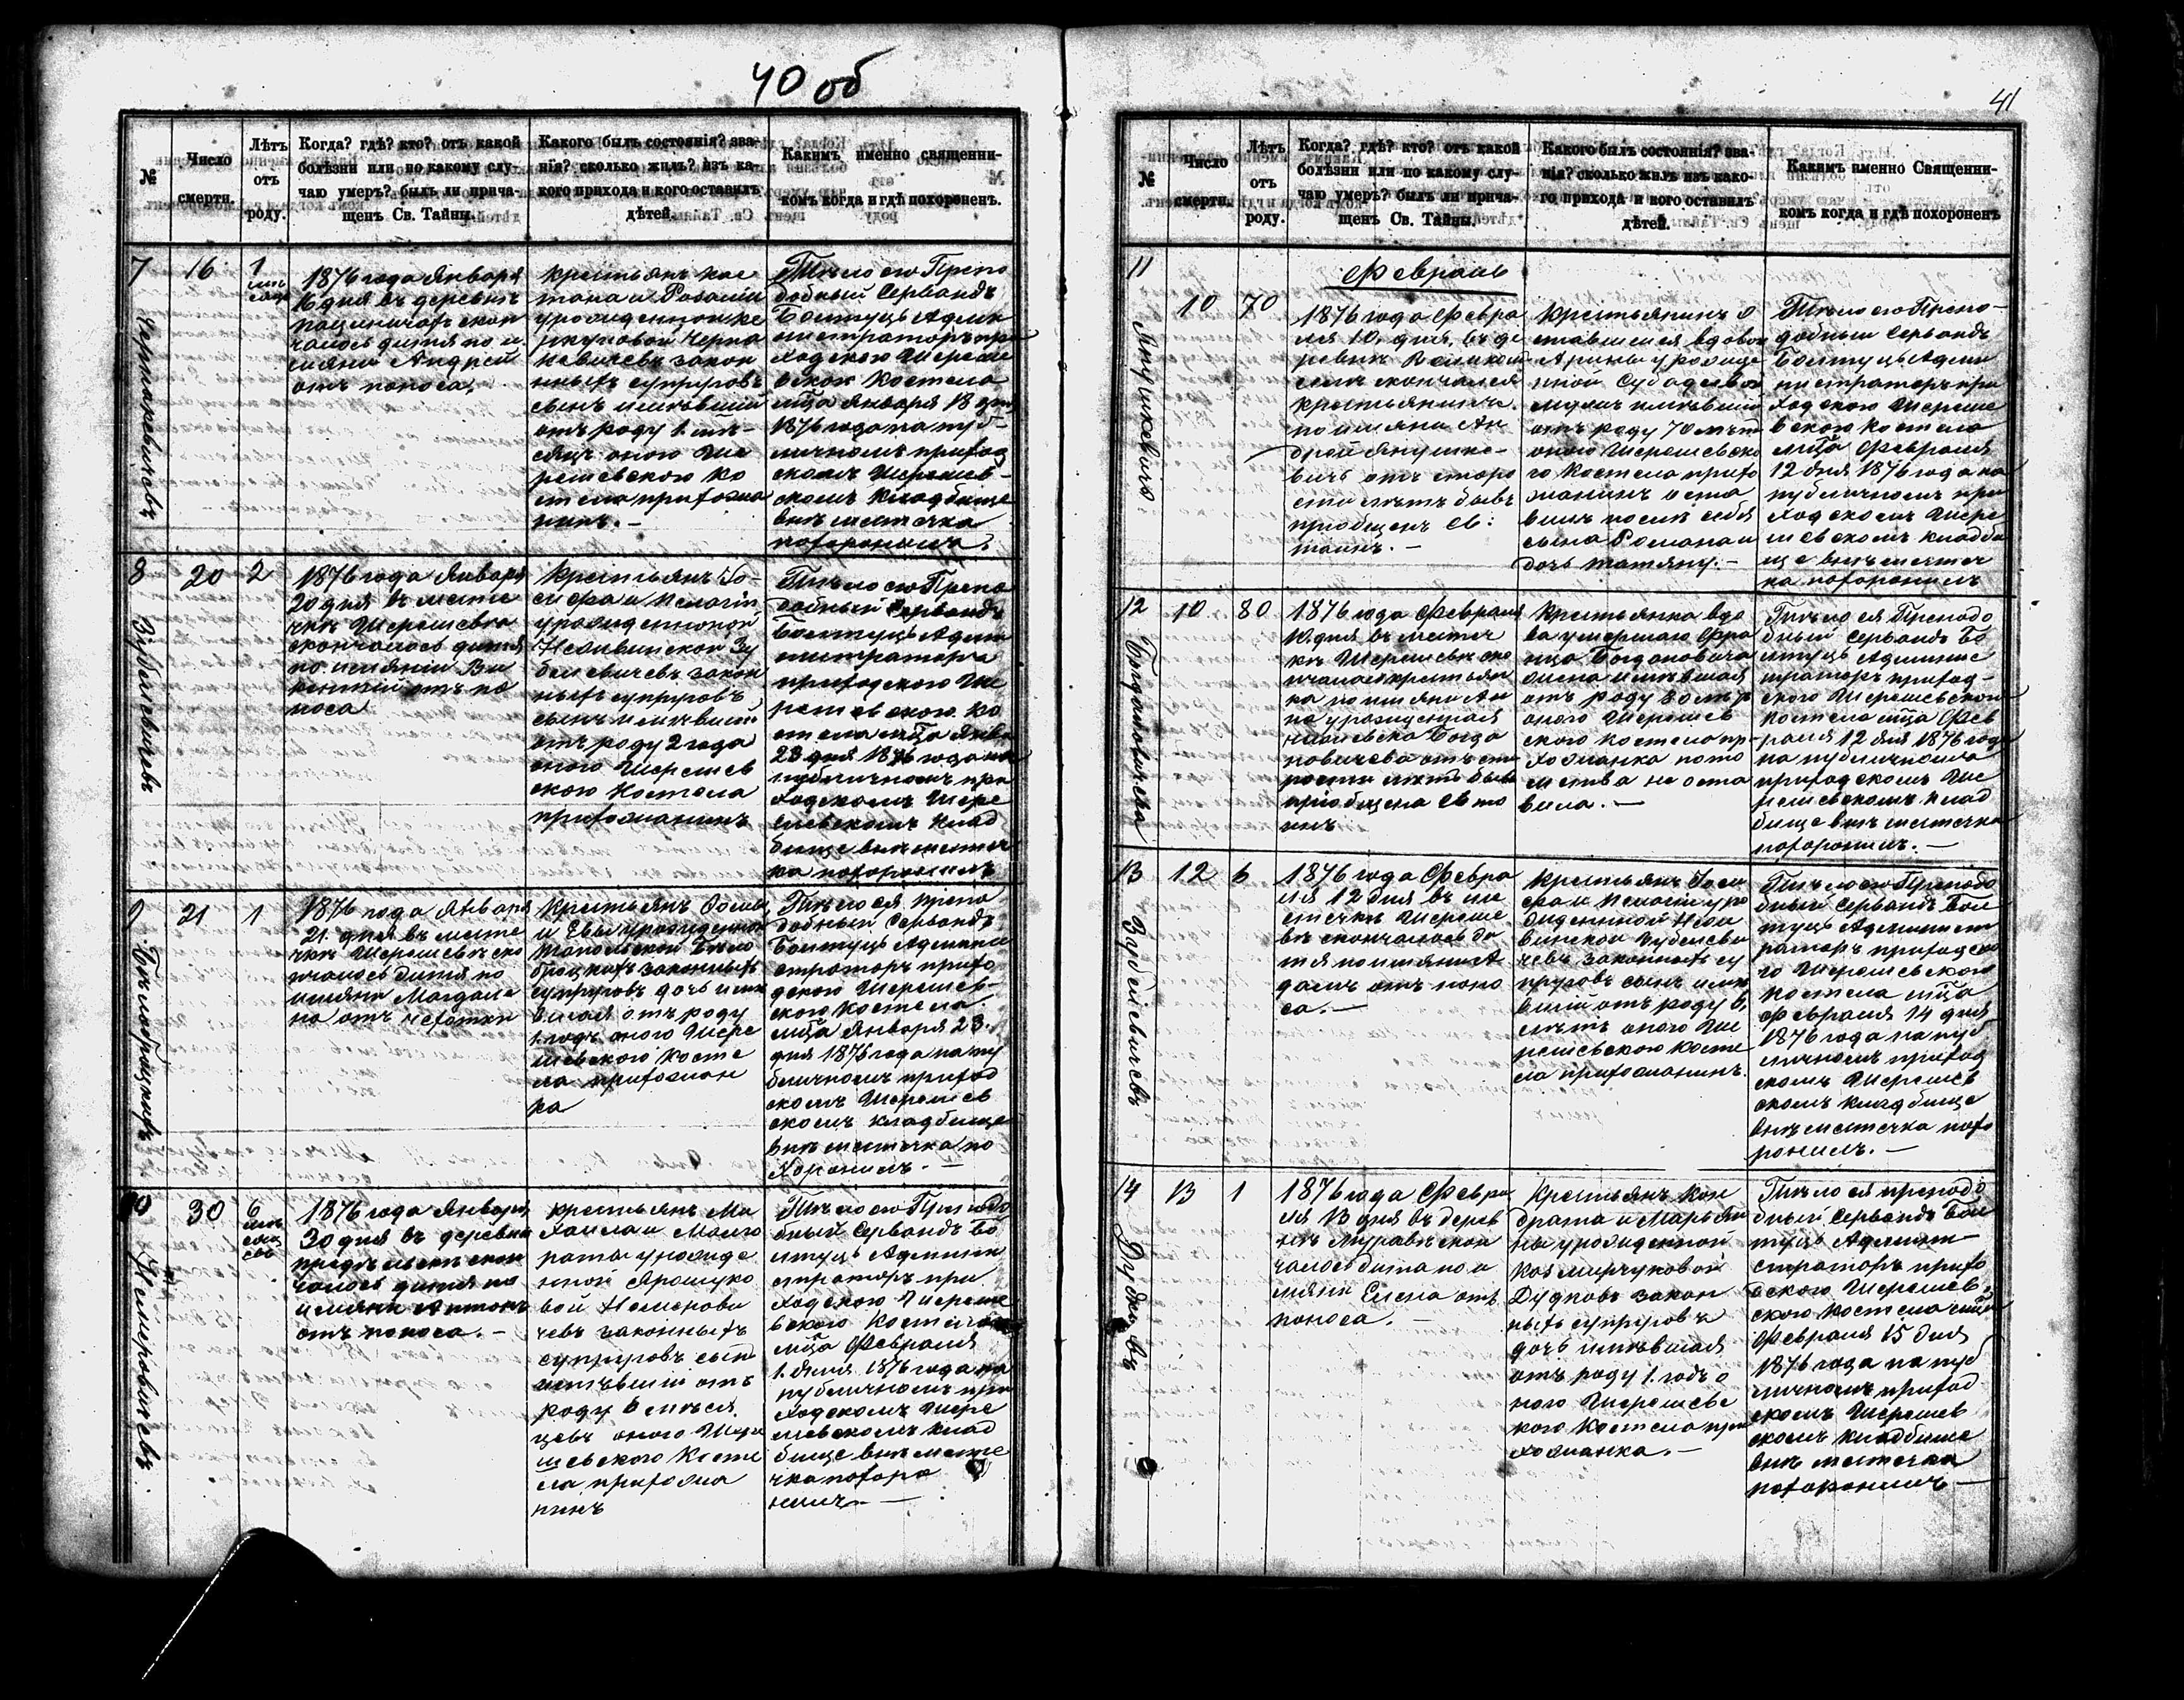 40 об
№
Число
смерти.
Лѣтъ
отъ
роду.
Когда? гдѣ? кто? отъ какой
болѣзни или по какому слу-
чаю умеръ? былъ ли прича-
щенъ Св. Тайны.
Какого былъ состоянія? зва-
нія? сколько жилъ? изъ ка-
кого прихода и кого оставилъ
дѣтей.
Какимъ именно священни-
комъ когда и гдѣ похороненъ.
7
16
1
мѣ
сяцъ
1876 года Января
16 дня въ деревнѣ
скон
чалось дитя по и
мяни Андрей
отъ поноса.
Крестьянъ Кае
тана и Розаліи
урожденной
Черна
кевичевъ закон
ныхъ супруговъ
сынъ имѣвшій
отъ роду 1 мѣ-
сяцъ оного Ше
решевского Ко
стела прихожа
нинъ. —
Тѣло его Препо
добный Сервандъ
Болтуцъ Адми
нистраторъ при
ходского Шереше
вского Костела
мца Января 18 дня
1876 года на пуб-
личномъ приход
скомъ Шерешев-
скомъ кладбище
внѣ местечка
похоронилъ.
8
20
2
1876 года Января
20 дня въ месте
чкѣ Шерешевѣ
скончалось дитя
по имяни Ви
кентій отъ по
носа
Крестьянъ Іо-
сифа и Пелагіи
урожденной
Зу
белевичевъ закон
ныхъ супруговъ
сынъ имѣвшій
отъ роду 2 года
оного Шерешев
ского Костела
прихожанинъ
Тѣло его Препо
добный Сервандъ
Болтуцъ Адми
нистраторъ
приходского Ше
решевского Ко
стела мца Янва
23 дня 1876 года на
публичномъ при
ходскомъ Шере
шевскомъ клад
бище внѣ местеч
ка похоронилъ
Зубелевичевъ
21
1
1876 года Января
21 дня въ месте
чкѣ Шерешевѣ ско
нчалось дитя по
имяни Магдале
на отъ чахотки
Крестьянъ
и Евы урожденной
Бѣло
брицкихъ законныхъ
супруговъ дочь имѣ
вшая отъ роду
1 годъ оного Шере
шевского Косте
ла прихожан
ка
Тѣло ея Препо
добный Сервандъ
Болтуцъ Админи
страторъ прихо
дского Шерешев-
ского Костела
мца Января 23
дня 1876 года на пу
бличномъ приход
скомъ Шерешев
скомъ кладбище
внѣ местечка по
хоронилъ. —
30
6
мѣ
сяц
евъ
1876 года Января
30 дня въ деревни
скон
чалось дитя по
имяни Антонъ
отъ поноса. —
Крестьянъ Ми
хаила и Марга
риты урожде
нной Ярошуко
вой Немерови
чевъ законныхъ
супруговъ сынъ
имѣвшій отъ
роду 6 мѣся
цевъ оного Шере
шевского Косте
ла прихожа
нинъ
Тѣло его Преподо
бный Сервандъ Бо
лтуцъ Админи
страторъ при
ходского Шереше
вского Костела
мца Февраля
1. дня 1876 года на
публичномъ при
ходскомъ Шере
шевскомъ клад
бище внѣ месте
чка похоро
нилъ. —
Немеровичевъ
41
№
Число
смерти.
Лѣтъ
отъ
роду.
Когда? гдѣ? кто? отъ какой
болѣзни или по какому слу-
чаю умеръ? былъ ли прича-
щенъ Св. Тайны.
Какого былъ состоянія? зва-
нія? сколько жилъ изъ како-
го прихода и кого оставилъ
дѣтей.
Какимъ именно Священни-
комъ когда и гдѣ похороненъ
11
Февраль
10
70
1876 года Февра
ля 10. дня, въ де
ревнѣ Великом
селѣ скончался
крестьянинъ
по имяни Ан
дрей Янушке-
вичъ отъ старо
сти лѣтъ бывъ
пріобщенъ Св:
таинъ. —
Крестьянинъ о
ставшейся вдовой
Арины урожде
нной
мужъ имѣвшій
отъ роду 70 лѣтъ
оного Шерешевско
го Костела прихо
жанинъ оста
вилъ послѣ себя
сына Романа и
дочь Татяну. —
Тѣло его Препо-
добный Сервандъ
Болтуцъ Адми
нистраторъ при
ходского Шереше
вского Костела
мца Февраля
12 дня 1876 года на
публичномъ при
ходскомъ Шере
шевскомъ кладби
ще внѣ местеч
ка похоронилъ
12
10
80
1876 года Февраля
10 дня въ местеч
кѣ Шерешевѣ ско
нчалась крестьян
ка по имяни Ан
на урожденная
Богда
новичева отъ ста
рости лѣтъ бывъ
пріобщена Св та
инъ
Крестьянка вдо
ва умершаго Фра
нца Богдановича
жена имѣвшая
отъ роду 80 лѣтъ
оного Шерешев
ского Костела пр-
ихожанка пото
мства не оста
вила. —
Тѣло ея Преподо
бный Сервандъ Бо
лтуцъ Админис
траторъ приход-
ского Шерешевского
Костела мца Фев
раля 12 дня 1876 года
на публичномъ
приходскомъ Ше
решевскомъ клад
бище внѣ местечка
похоронилъ. —
Богдановичева
13
12
6
1876 года Февра
ля 12 дня въ ме
стечкѣ Шереше
вѣ скончалось ди
тя по имяни А
дамъ отъ поно
са. —
Крестьянъ Іоси
фа и Пелагіи уро
жденной
Зубелеви
чевъ законныхъ су
пруговъ сынъ имѣ
вшій отъ роду 6,
лѣтъ оного Ше
решевского Косте
ла прихожанинъ.
Тѣло его Преподо
бный Сервандъ Бол
туцъ Администр
раторъ приходско
го Шерешевского
Костела мца
Февраля 14 дня
1876 года на пуб
личномъ приход
скомъ Шерешев
скомъ кладбище
внѣ местечка похо
ронилъ. —
14
13
1
1876 года Февра
ля 13 дня въ дерев
нѣ скон
чалось дитя по и
мяни Елена отъ
поноса. —
Крестьянъ Кон
драта и Марьян
ны урожденной
Казмирчуковой
Дудковъ закон
ныхъ супруговъ
дочь имѣвшая
отъ роду 1. годъ о
ного Шерешевс
кого Костела при
хожанка. —
Тѣло ея Преподо
бный Сервандъ Бол
туцъ Админи-
страторъ прихо
дского Шерешев-
ского Костела мца
Февраля 15 дня
1876 года на пуб
личномъ приход
скомъ Шерешев
скомъ кладбище
внѣ местечка
похоронилъ —
Дудковъ